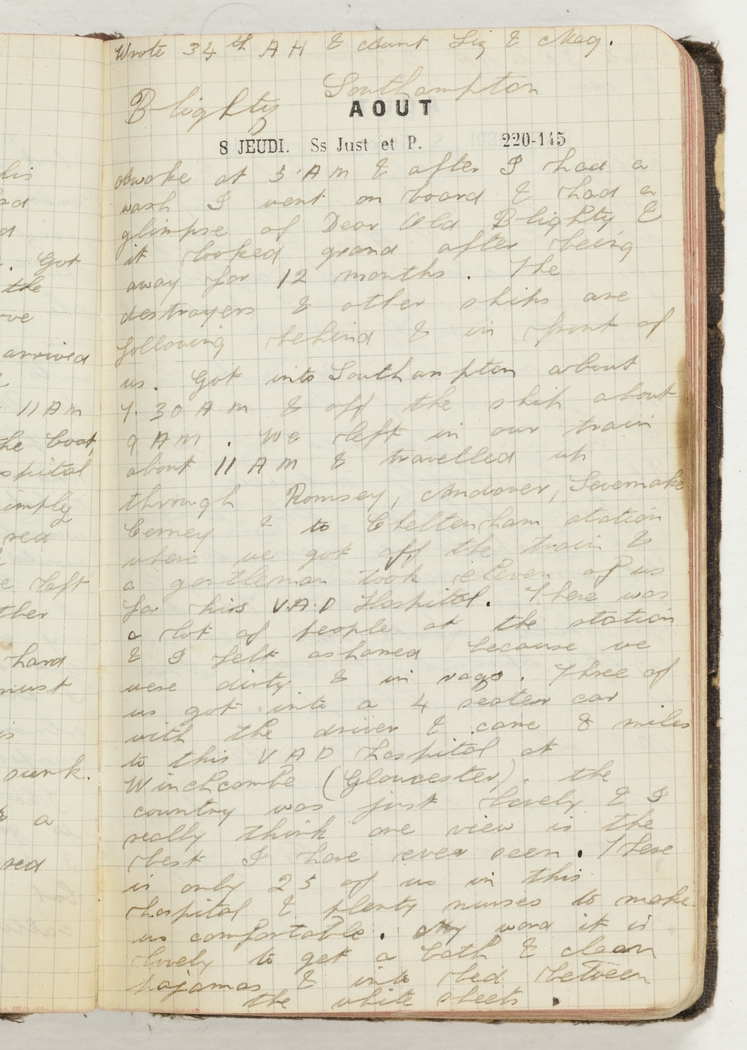 his
Got
the
arrived
11 AM
the boat,
hospital
simply
red
left
hard
must
is
sunk.
& a
Wrote 34th A H & Aunt Liz & Mag.
Blighty Southampton
AOUT
8 JEUDI. Ss Just et P. 220-145
Awoke at 5 AM & after I had a
wash I went on board & had a
glimpse of Dear Old Blighty &
it looked grand after being
away for 12 months. The
destroyers & other ships are
following behind & in front of
us. Got into Southampton about
7.30 AM & off the ship about
9 AM. We left in our train
about 11 AM & travelled up
through Romsey, Andover, Savernake
Cerney & to Cheltenham station
where we got off the train &
a gentleman took eleven of us
to his VAD Hospital. There was
a lot of people at the station
& I felt ashamed because we
were dirty & in rags. Three of
us got into a 4 seater car
with the driver & came 8 miles
to this VAD hospital at
Winchcombe (Gloucester). the
country was just lovely & I
really think one view is the
best I have ever seen. There
is only 25 of us in this
hospital & plenty nurses to make
us comfortable. My word it is
lovely to get a bath & clean
pajamas & into bed between
the white sheets.